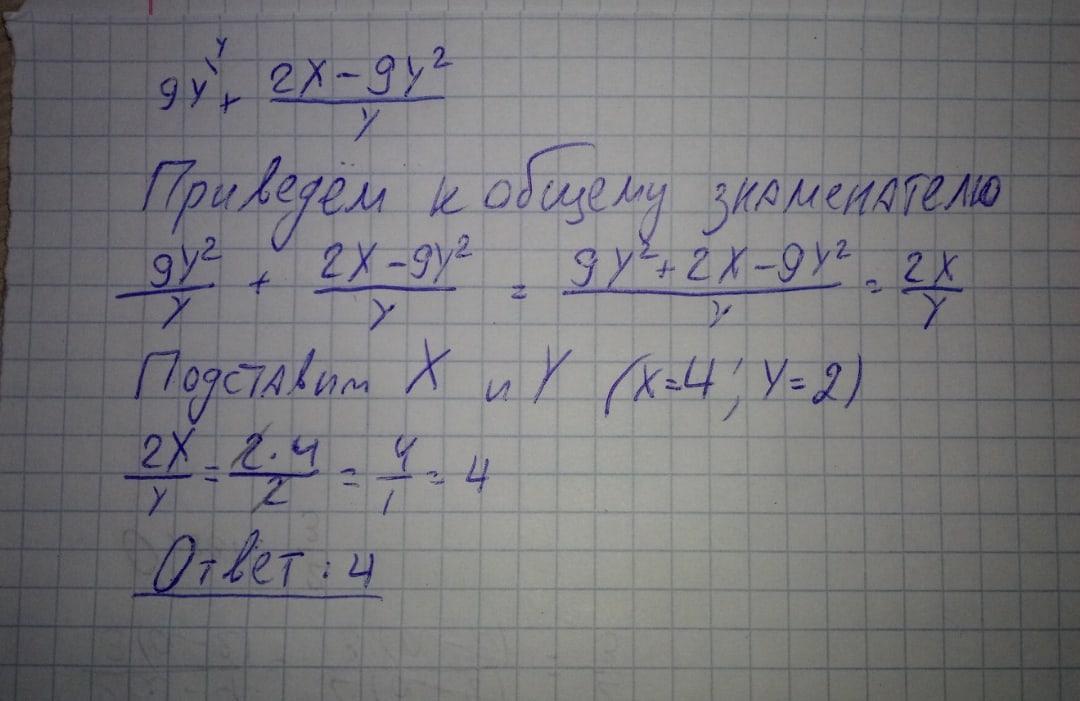 9y\y + (2x-9y²)/y
Приведём к общему знаменателю
9y²/y + (2x-9y²)/y = (9y²+2x-9y²)/y = 2x/y
Подставим X и Y (x=4; y=2)
2x/y = 2·4/2 = 4/1 = 4
Ответ: 4